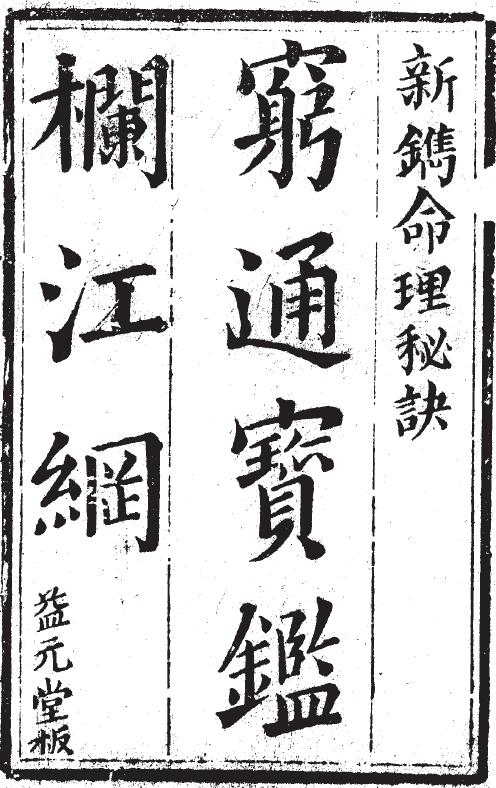 新鐫命理秘訣
窮通寶鑑
欄江網
益元堂板